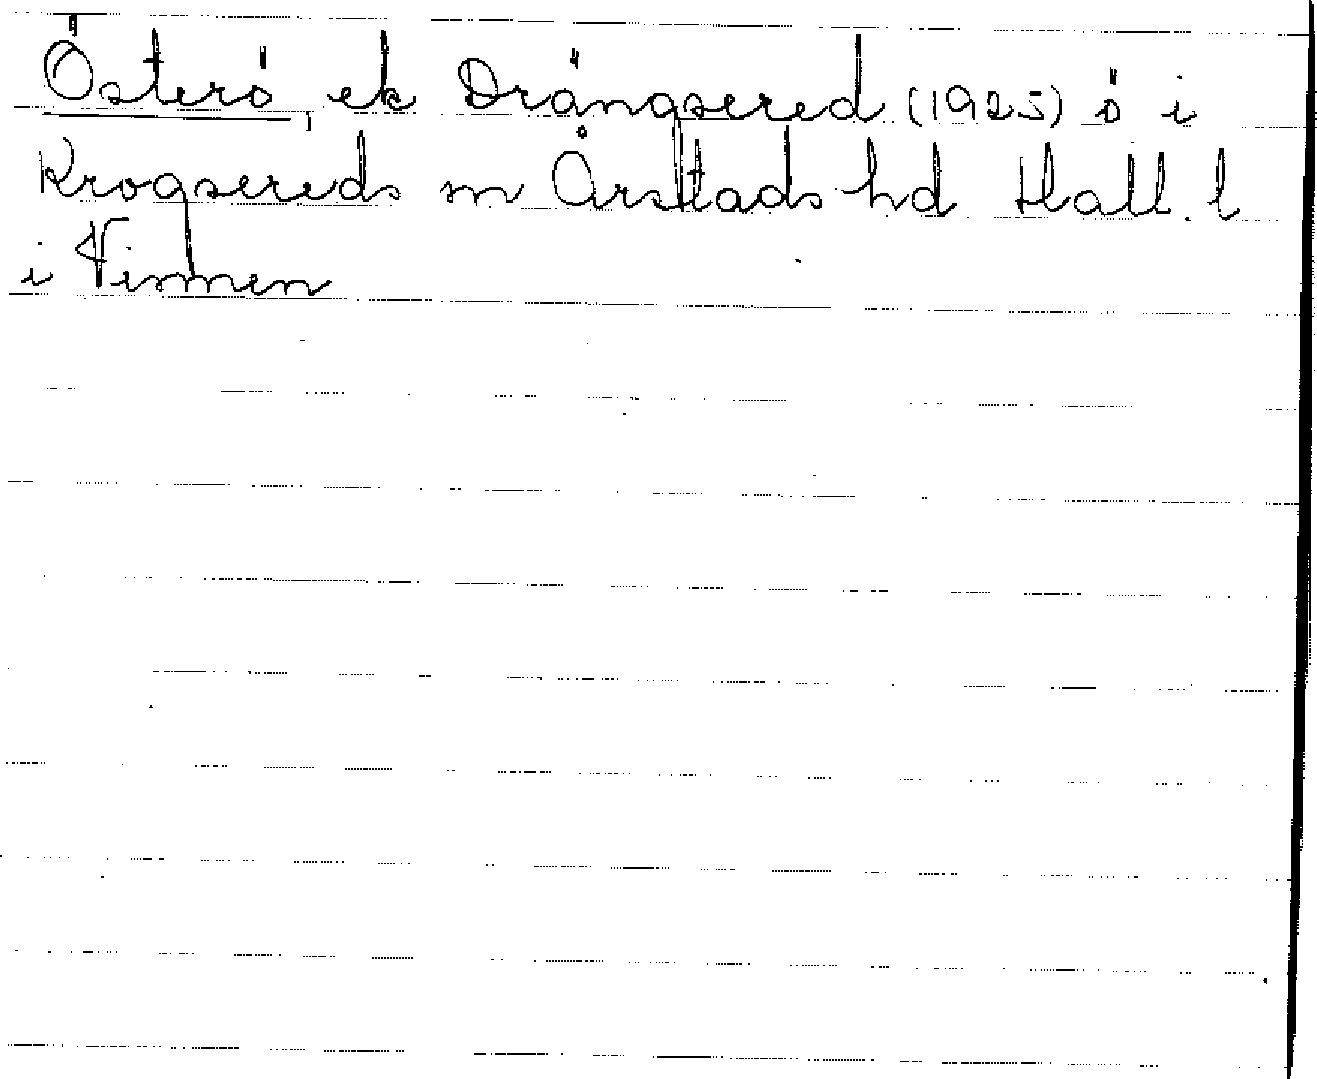 Österö, ek Drängsered (1925) ö i
Krogsereds sn Årstads hd Hall. l
i Vinnen